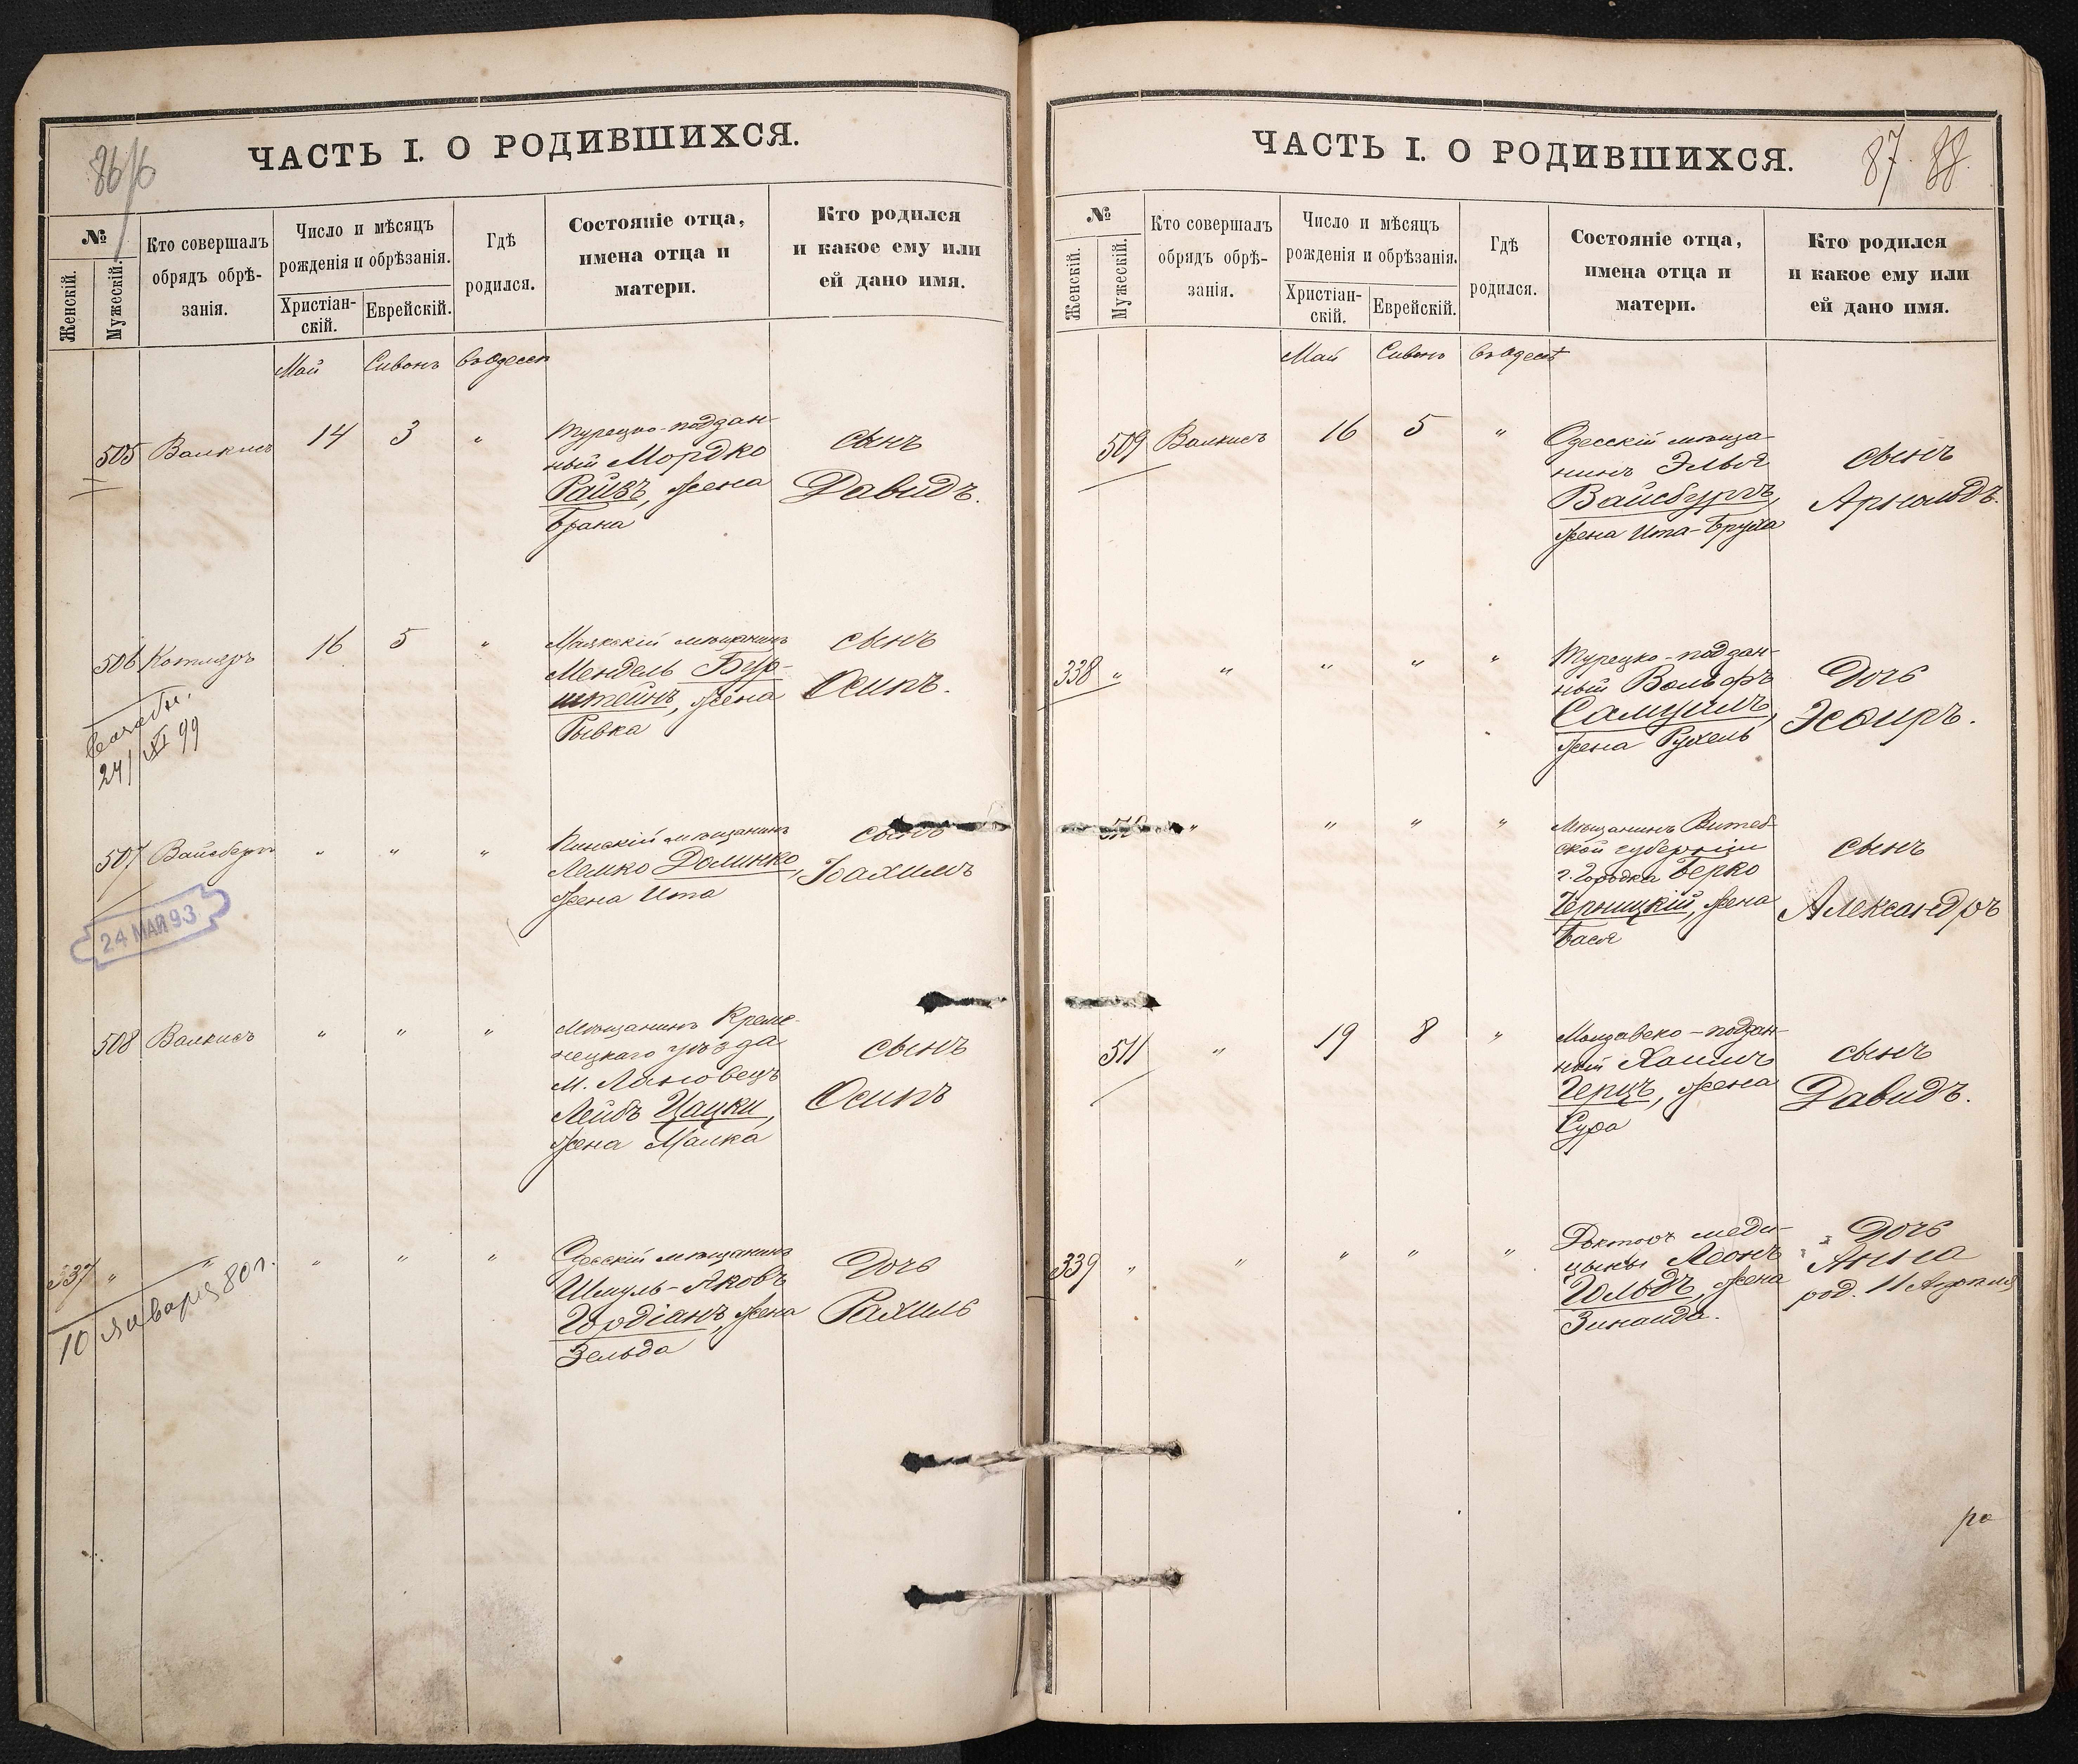 86/6
ЧАСТЬ I. О РОДИВШИХСЯ.
№
Женскій.
Мужескій.
Кто совершалъ
обрядъ обрѣ-
занія.
Число и мѣсяцъ
рожденія и обрѣзанія.
Христіан-
скій.
Еврейскій.
Гдѣ
родился.
Состояніе отца,
имена отца и
матери.
Кто родился
и какое ему или
ей дано имя.
Май Сивонъ въ Одессѣ
505 Валкисъ 14 3 „
Турецко-поддан-
ный Мордко
Райзъ, жена
Брана
сынъ
Давидъ.
506 Котляръ 16 5 „
Маякскій мѣщанинъ
Мендель Бур-
штейнъ, жена
Рывка
сынъ
Осипъ.
24/XI 99
507 Вайсбергъ „ „ „
Пинскій мѣщанинъ
Лемко Долинко,
жена Ита
сынъ
Нахимъ
24 МАЯ 93
508 Валкисъ „ „ „
Мѣщанинъ Креме-
нецкаго уѣзда
м. Лановецъ
Лейбъ Цацки,
жена Малка
сынъ
Осипъ
337 „ „ „ „ „
Одесскій мѣщанинъ
Шмуль-Яковъ
Гордіанъ, жена
Зельда
дочь
Рахиль
10 января 80 г.
ЧАСТЬ I. О РОДИВШИХСЯ.
87. 88.
№
Женскій.
Мужескій.
Кто совершалъ
обрядъ обрѣ-
занія.
Число и мѣсяцъ
рожденія и обрѣзанія.
Христіан-
скій.
Еврейскій.
Гдѣ
родился.
Состояніе отца,
имена отца и
матери.
Кто родился
и какое ему или
ей дано имя.
Май Сивонъ въ Одессѣ
509 Валкисъ 16 5 „
Одесскій мѣща-
нинъ Элья
Вайсбургъ,
жена Ита-Бруха
сынъ
Арнольдъ.
338 „ „ „ „ „
Турецко-поддан-
ный Вольфъ
жена Рухель
дочь
Эсѳирь.
510 „ „ „ „
Мѣщанинъ Витеб-
ской губерніи
г. Городка Берко
Черницкій, жена
Бася
сынъ
Александръ
511 „ 19 8 „
Молдавско-поддан-
ный Хаимъ
Герцъ, жена
Сура
сынъ
Давидъ.
339 „ „ „ „ „
Докторъ меди-
цыны Леонъ
Гольдъ, жена
Зинаида.
дочь
Анна
род. 11 Апрѣля
ра